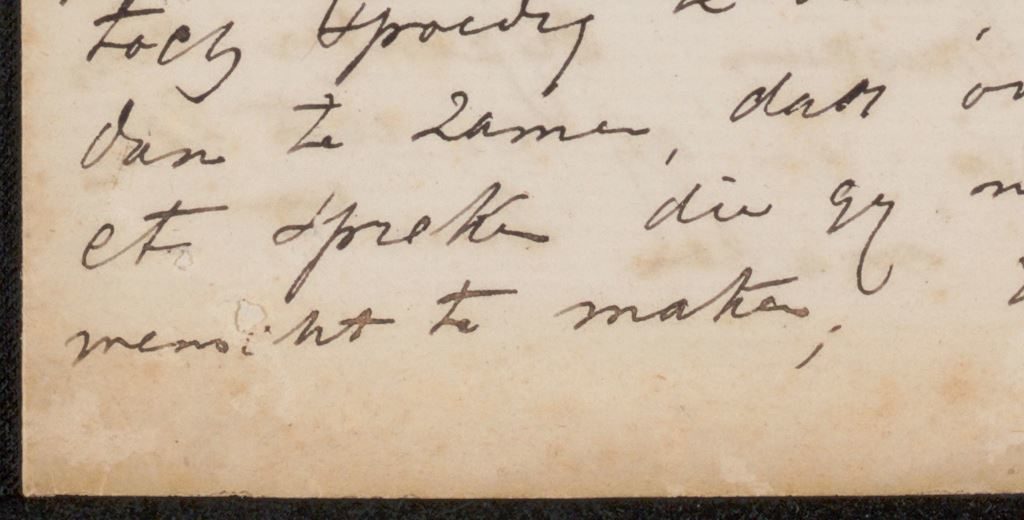 toch spoedig
dan te zamen, dan
et spreken die gy
te maken,